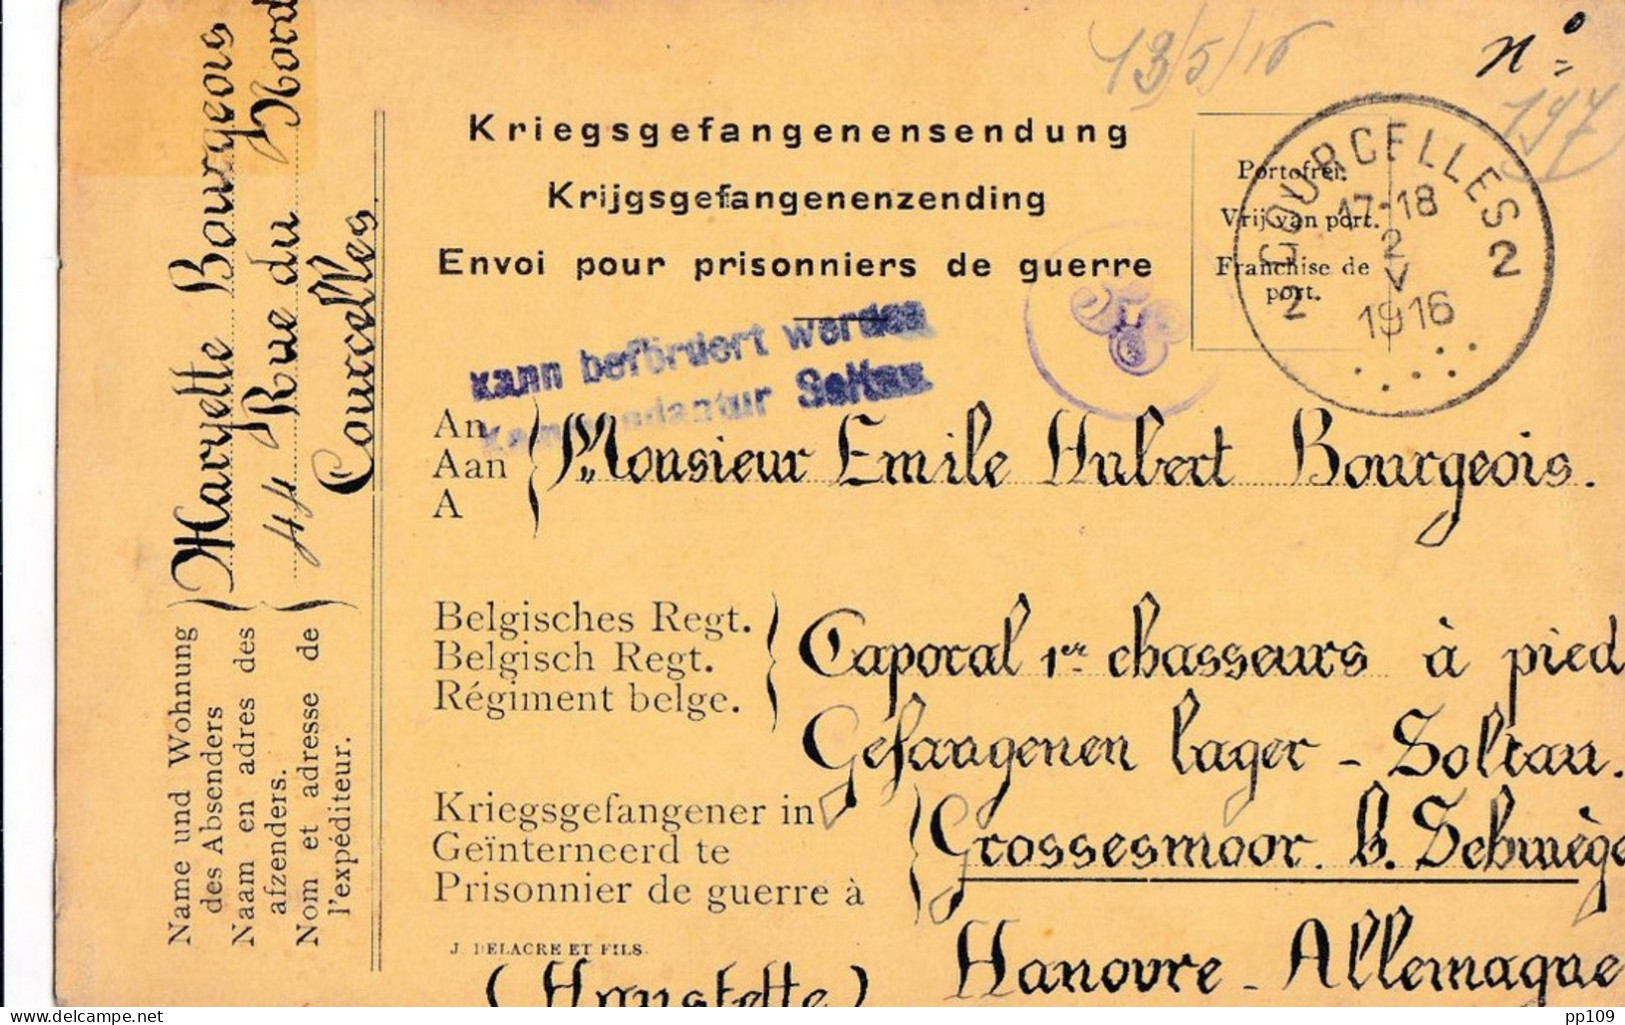 13/5/16
n°
197
Kriegsgefangenensendung
Krijgsgefangenenzending
Envoi pour prisonniers de guerre
Portofrei.
Vrij van port.
Franchise de
port.
2 COURCELLES 2
17-18
2
V
1916
kann befördert werden
Kommandantur Soltau
An
Aan
A
Monsieur Emile Hubert Bourgeois.
Belgisches Regt.
Belgisch Regt.
Régiment belge.
Caporal 1er chasseurs à pied
Gefangenen lager - Soltau.
Kriegsgefangener in
Geïnterneerd te
Prisonnier de guerre à
Grossesmoor. b. Schwège
Hanovre - Allemagne
J. DELACRE ET FILS.
(Hanstette)
Name und Wohnung
des Absenders
Naam en adres des
afzenders.
Nom et adresse de
l'expéditeur.
Maryette Bourgeous
44 Rue du Nord
Courcelles.
Ajouter un texte
pp109